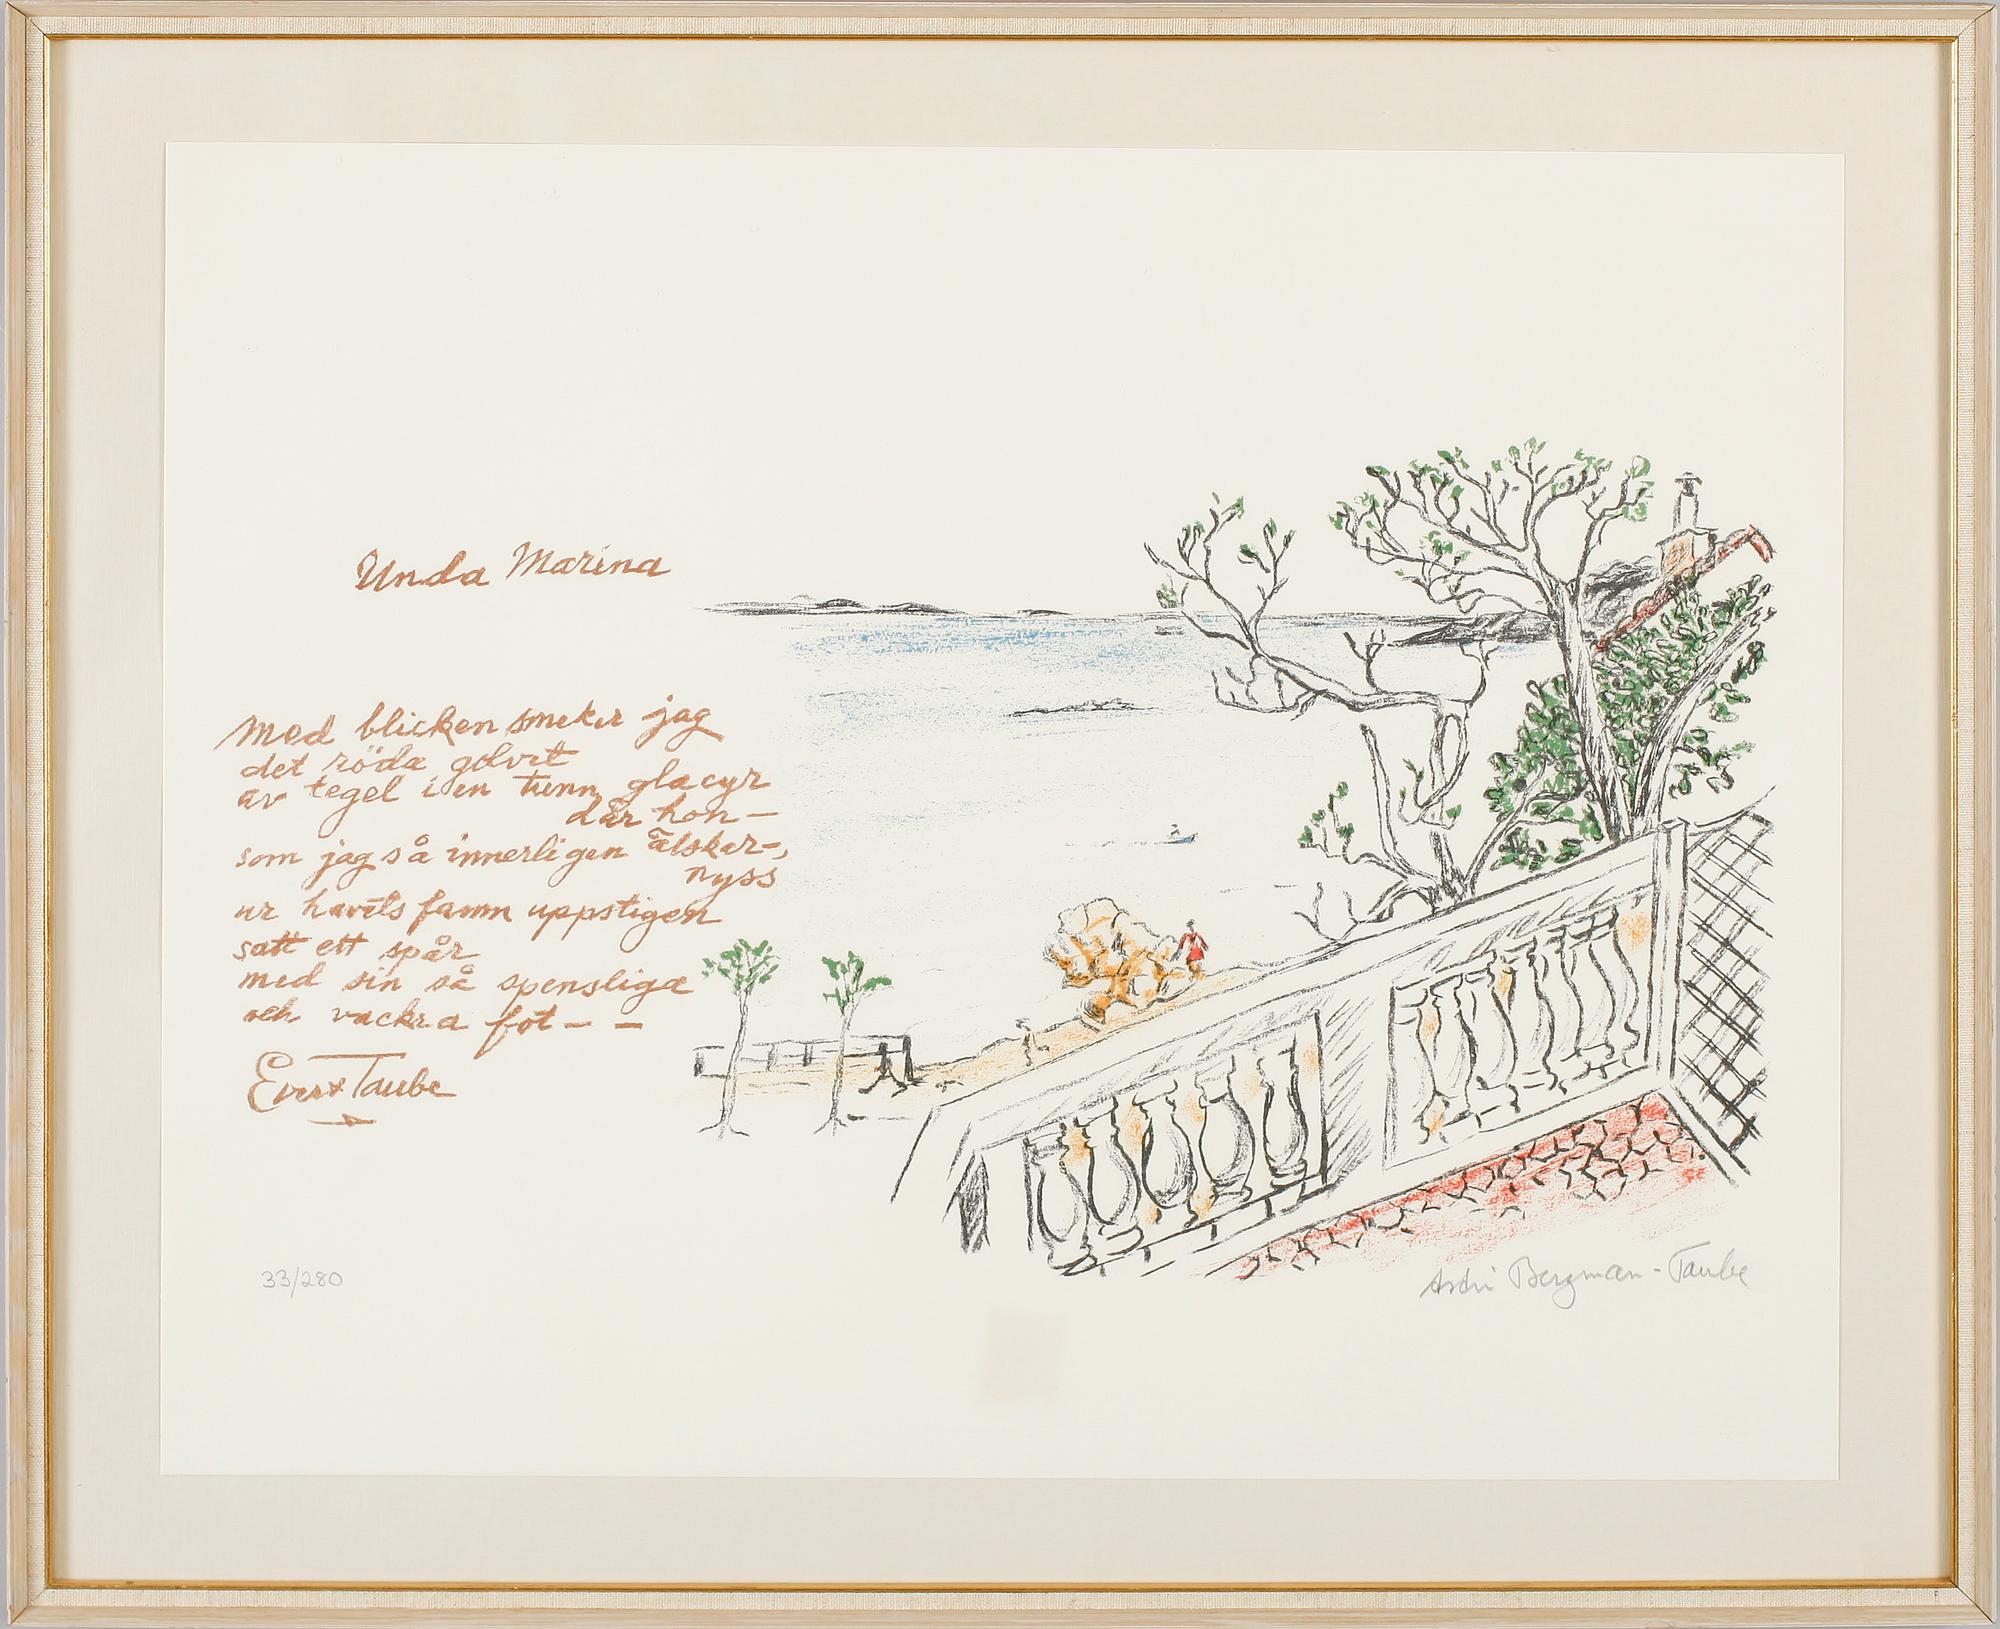 Unda Marina
Med blicken smeker jag
det röda golvet
av tegel i en tunn glacyr
där hon —
som jag så innerligen älskar —,
nyss
ur havets famn uppstigen
satt ett spår
med sin så spensliga
och vackra fot — —
Evert Taube
33/280
Astri Bergman-Taube